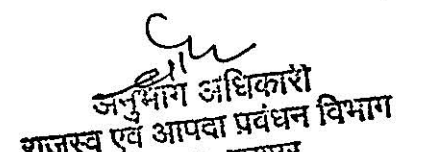 अनुभाग अधिकारी
राजस्व एवं आपदा प्रबंधन विभाग